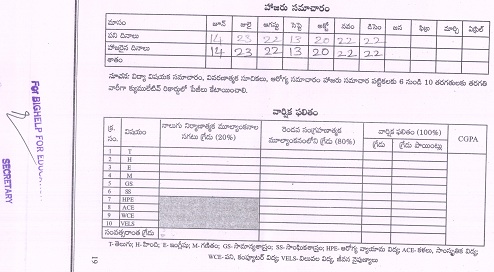 హాజరు సమాచారం
మాసం జూన్ జులై ఆగష్టు సెప్టె అక్టో నవం డిసెం జన ఫిబ్రు మార్చి ఏప్రిల్
పని దినాలు 14 23 22 13 20 22 22
హాజరైన దినాలు 14 23 22 13 20 22 22
శాతం
సూచన: విద్యా విషయక సమాచారం, వివరణాత్మక సూచికలు, ఆరోగ్య సమాచారం హాజరు సమాచార పట్టికలకు 6 నుండి 10 తరగతులకు తరగతి
వారీగా క్యుములేటివ్ రికార్డులో పేజీలు కేటాయించాలి.
వార్షిక ఫలితం
క్ర. సం. విషయం నాలుగు నిర్మాణాత్మక మూల్యాంకనాల సగటు గ్రేడు (20%) రెండవ సంగ్రహణాత్మక మూల్యాంకనంలోని గ్రేడు (80%) వార్షిక ఫలితం (100%) CGPA
గ్రేడు గ్రేడు పాయింట్లు
1 T
2 H
3 E
4 M
5 GS
6 SS
7 HPE
8 ACE
9 WCE
10 VELS
సంవత్సరాంత గ్రేడు
T- తెలుగు; H-హిందీ; E- ఇంగ్లీషు; M-గణితం; GS- సామాన్యశాస్త్రం; SS- సాంఘికశాస్త్రం; HPE- ఆరోగ్య వ్యాయామ విద్య; ACE- కళలు, సాంస్కృతిక విద్య;
WCE- పని, కంప్యూటర్ విద్య; VELS- విలువల విద్య, జీవన నైపుణ్యాలు
19
For BIGHELP FOR
SECRETARY